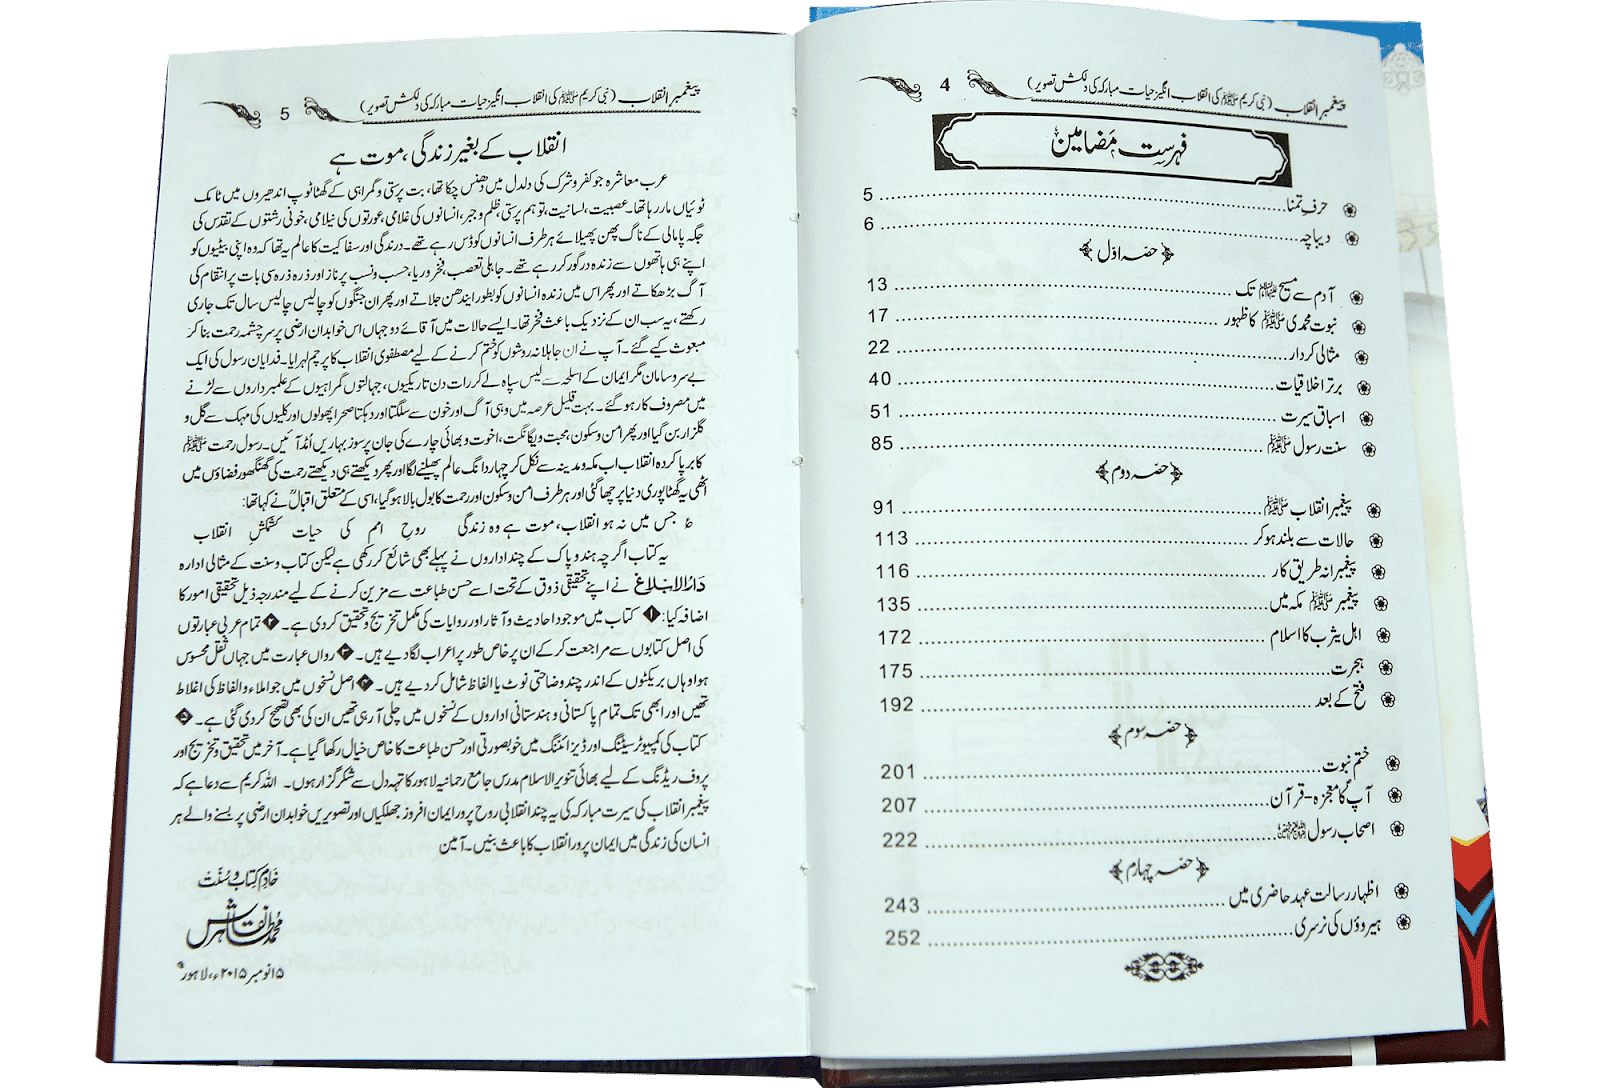 پیغمبرِ انقلاب (نبی کریم ﷺ کی انقلاب انگیز حیات مبارکہ کی دلکش تصویر) 4
فہرست مَضامین
حرفِ تمنا 5
دیباچہ 6
حصّہ اوّل
آدم سے مسیح علیہ السلام تک 13
نبوت محمدی ﷺ کا ظہور 17
مثالی کردار 22
برتر اخلاقیات 40
اسباقِ سیرت 51
سنت رسول ﷺ 85
حصّہ دوم
پیغمبر انقلاب ﷺ 91
حالات سے بلند ہو کر 113
پیغمبرانہ طریق کار 116
پیغمبر ﷺ مکہ میں 135
اہل یثرب کا اسلام 172
ہجرت 175
فتح کے بعد 192
حصّہ سوم
ختم نبوت 201
آپؐ کا معجزہ - قرآن 207
اصحاب رسول 222
حصّہ چہارم
اظہار رسالت عہد حاضری میں 243
ہیروؤں کی نرسری 252
پیغمبرِ انقلاب (نبی کریم ﷺ کی انقلاب انگیز حیات مبارکہ کی دلکش تصویر) 5
انقلاب کے بغیر زندگی، موت ہے
عرب معاشرہ جو کفر و شرک کی دلدل میں دھنس چکا تھا، بت پرستی و گمراہی کے گھٹا ٹوپ اندھیروں میں ٹامک
ٹوئیاں مار رہا تھا۔ عصبیت، لسانیت، توہم پرستی، ظلم و جبر، انسانوں کی غلامی، عورتوں کی نیلامی، خونی رشتوں کے تقدس کی
جگہ پامالی کے ناگ پھن پھیلائے ہر طرف انسانوں کو ڈس رہے تھے۔ درندگی اور سفاکیت کا عالم یہ تھا کہ وہ اپنی بیٹیوں کو
اپنے ہی ہاتھوں سے زندہ درگور کر رہے تھے۔ جاہلی تعصب، فخر و ریا، حسب و نسب پر ناز اور ذرہ ذرہ سی بات پر انتقام کی
آگ بڑھکاتے اور پھر اس میں زندہ انسانوں کو بطور ایندھن جلاتے اور پھر ان جنگوں کو چالیس چالیس سال تک جاری
رکھتے، یہ سب ان کے نزدیک باعث فخر تھا۔ ایسے حالات میں آقائے دو جہاں اس خوابدان ارضی پر سرچشمہ رحمت بنا کر
مبعوث کیے گئے۔ آپ نے ان جاہلانہ روشوں کو ختم کرنے کے لیے مصطفوی انقلاب کا پرچم لہرایا۔ فدایان رسول کی ایک
بے سرو سامان مگر ایمان کے اسلحہ سے لیس سپاہ لے کر رات دن تاریکیوں، جہالتوں گمراہیوں کے علمبرداروں سے لڑنے
میں مصروف کار ہو گئے۔ بہت قلیل عرصہ میں وہی آگ اور خون سے سلگتا اور دہکتا صحرا پھولوں اور کلیوں کی مہک سے گل و
گلزار بن گیا اور پھر امن و سکون، محبت و یگانگت، اخوت و بھائی چارے کی جان پرسوز بہاریں اُمڈ آئیں۔ رسول رحمت ﷺ
کا برپا کردہ انقلاب اب مکہ و مدینہ سے نکل کر چہار دانگ عالم پھیلنے لگا اور پھر دیکھتے ہی دیکھتے رحمت کی گھنگھور فضاؤں میں
اٹھی یہ گھٹا پوری دنیا پر چھا گئی اور ہر طرف امن و سکون اور رحمت کا بول بالا ہو گیا، اسی کے متعلق اقبالؒ نے کہا تھا:
؏ جس میں نہ ہو انقلاب، موت ہے وہ زندگی روحِ امم کی حیات کشمکشِ انقلاب
یہ کتاب اگرچہ ہند و پاک کے چند اداروں نے پہلے بھی شائع کر رکھی ہے لیکن کتاب و سنت کے مثالی ادارہ
دارالابلاغ نے اپنے تحقیقی ذوق کے تحت اسے حسن طباعت سے مزین کرنے کے لیے مندرجہ ذیل تحقیقی امور کا
اضافہ کیا: ۱ کتاب میں موجود احادیث و آثار اور روایات کی مکمل تخریج و تحقیق کر دی ہے۔ ۲ تمام عربی عبارتوں
کی اصل کتابوں سے مراجعت کر کے ان پر خاص طور پر اعراب لگا دیے ہیں۔ ۳ رواں عبارت میں جہاں ثقل محسوس
ہوا وہاں بریکٹوں کے اندر چند وضاحتی نوٹ یا الفاظ شامل کر دیے ہیں۔ ۴ اصل نسخوں میں جو املاء و الفاظ کی اغلاط
تھیں اور ابھی تک تمام پاکستانی و ہندستانی اداروں کے نسخوں میں چلی آ رہی تھیں ان کی بھی تصحیح کر دی گئی ہے۔ ۵
کتاب کی کمپیوٹر سیٹنگ اور ڈیزائننگ میں خوبصورتی اور حسن طباعت کا خاص خیال رکھا گیا ہے۔ آخر میں تحقیق و تخریج اور
پروف ریڈنگ کے لیے بھائی تنویر الاسلام مدرس جامع رحمانیہ لاہور کا تہہ دل سے شکر گزار ہوں۔ اللہ کریم سے دعا ہے کہ
پیغمبر انقلاب کی سیرت مبارکہ کی یہ چند انقلابی روح پرور ایمان افروز جھلکیاں اور تصویریں خوابدان ارضی پر بسنے والے ہر
انسان کی زندگی میں ایمان پرور انقلاب کا باعث بنیں۔ آمین
خادم کتاب و سُنّت
محمد طاہر نقاش
۱۵ نومبر ۲۰۱۵ء، لاہور